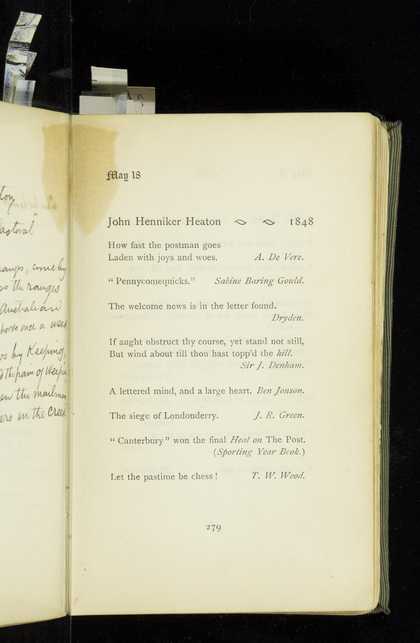 pastoral
ranges, come by
the ranges
Australian
once a week
by Keeping
on the mailman
on the Creek
May 18
John Henniker Heaton 1848
How fast the postman goes
Laden with joys and woes. A. De Vere.
“ Pennycomequicks.” Sabine Baring Gould.
The welcome news is in the letter found.
Dryden.
If aught obstruct thy course, yet stand not still,
But wind about till thou hast topp’d the hill.
Sir J. Denham.
A lettered mind, and a large heart. Ben Jonson.
The siege of Londonderry. J. R. Green.
“ Canterbury ” won the final Heat on The Post.
(Sporting Year Book.)
Let the pastime be chess ! T. W. Wood.
279